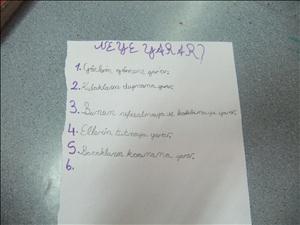 NEYE YARAR?
1. Gözlerim görmeme yarar.
2. Kulaklarım duymama yarar.
3. Burnum nefes almaya ve koklamaya yarar.
4. Ellerim tutmaya yarar.
5. Bacaklarım koşmama yarar.
6.